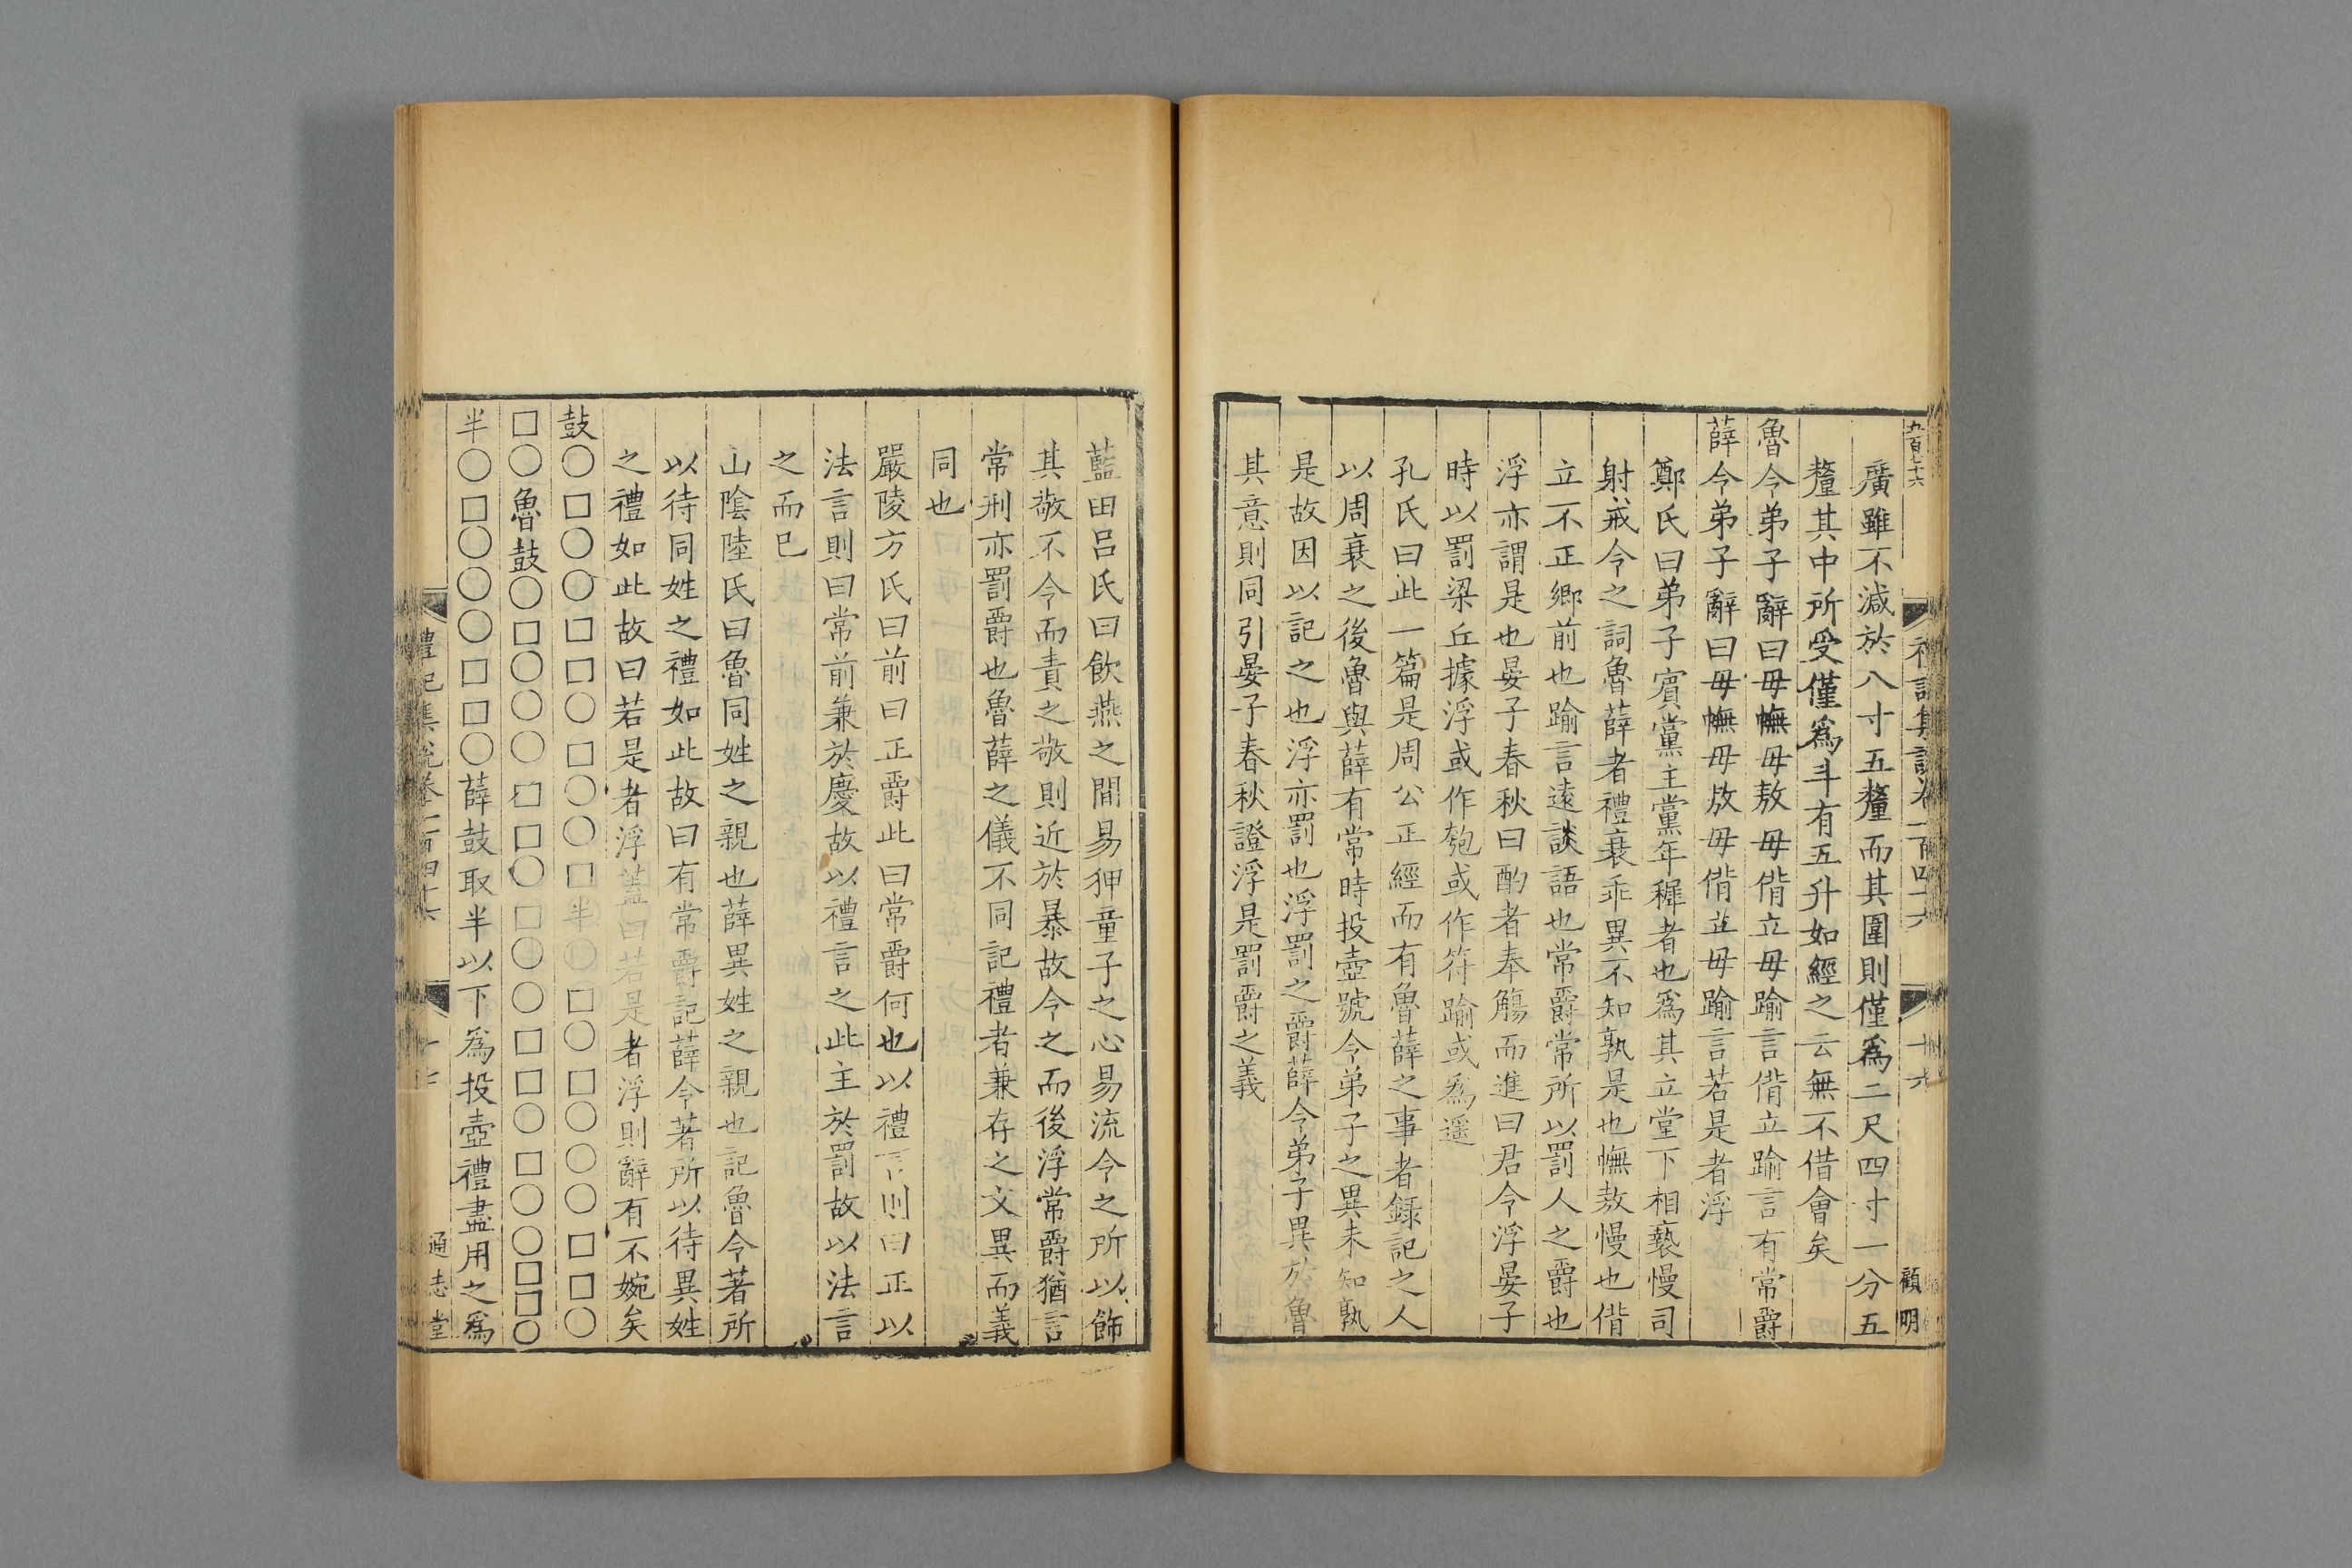 九百七十六
禮記集說卷一百四十六
十六
顧明
廣雖不減於八寸五釐而其圍則僅爲二尺四寸一分五
釐其中所受僅爲斗有五升如經之云無不借會矣
魯令弟子辭曰毋幠毋敖毋偝立毋踰言偝立踰言有常爵
薛令弟子辭曰毋幠毋敖毋偝立毋踰言若是者浮
鄭氏曰弟子賓黨主黨年穉者也爲其立堂下相褻慢司
射戒令之詞魯薛者禮衰乖異不知孰是也幠敖慢也偝
立不正鄉前也踰言遠談語也常爵常所以罰人之爵也
浮亦謂是也晏子春秋曰酌者奉觴而進曰君令浮晏子
時以罰梁丘據浮或作匏或作符踰或爲遥
孔氏曰此一篇是周公正經而有魯薛之事者錄記之人
以周衰之後魯與薛有常時投壺號令弟子之異未知孰
是故因以記之也浮亦罰也浮罰之爵薛令弟子異於魯
其意則同引晏子春秋證浮是罰爵之義
藍田吕氏曰飲燕之間易狎童子之心易流令之所以飾
其敬不令而責之敬則近於暴故令之而後浮常爵猶言
常刑亦罰爵也魯薛之儀不同記禮者兼存之文異而義
同也
嚴陵方氏曰前曰正爵此曰常爵何也以禮言則曰正以
法言則曰常前兼於慶故以禮言之此主於罰故以法言
之而已
山陰陸氏曰魯同姓之親也薛異姓之親也記魯令著所
以待同姓之禮如此故曰有常爵記薛令著所以待異姓
之禮如此故曰若是者浮蓋曰若是者浮則辭有不婉矣
鼓○□○○□□○□○○□半○□○□○○○□□○
□○魯鼓○□○○○□□○□○○□□○□○○□□○
半○□○○○□□○薛鼓取半以下爲投壺禮盡用之爲
禮記集說卷一百四十六
十七
通志堂